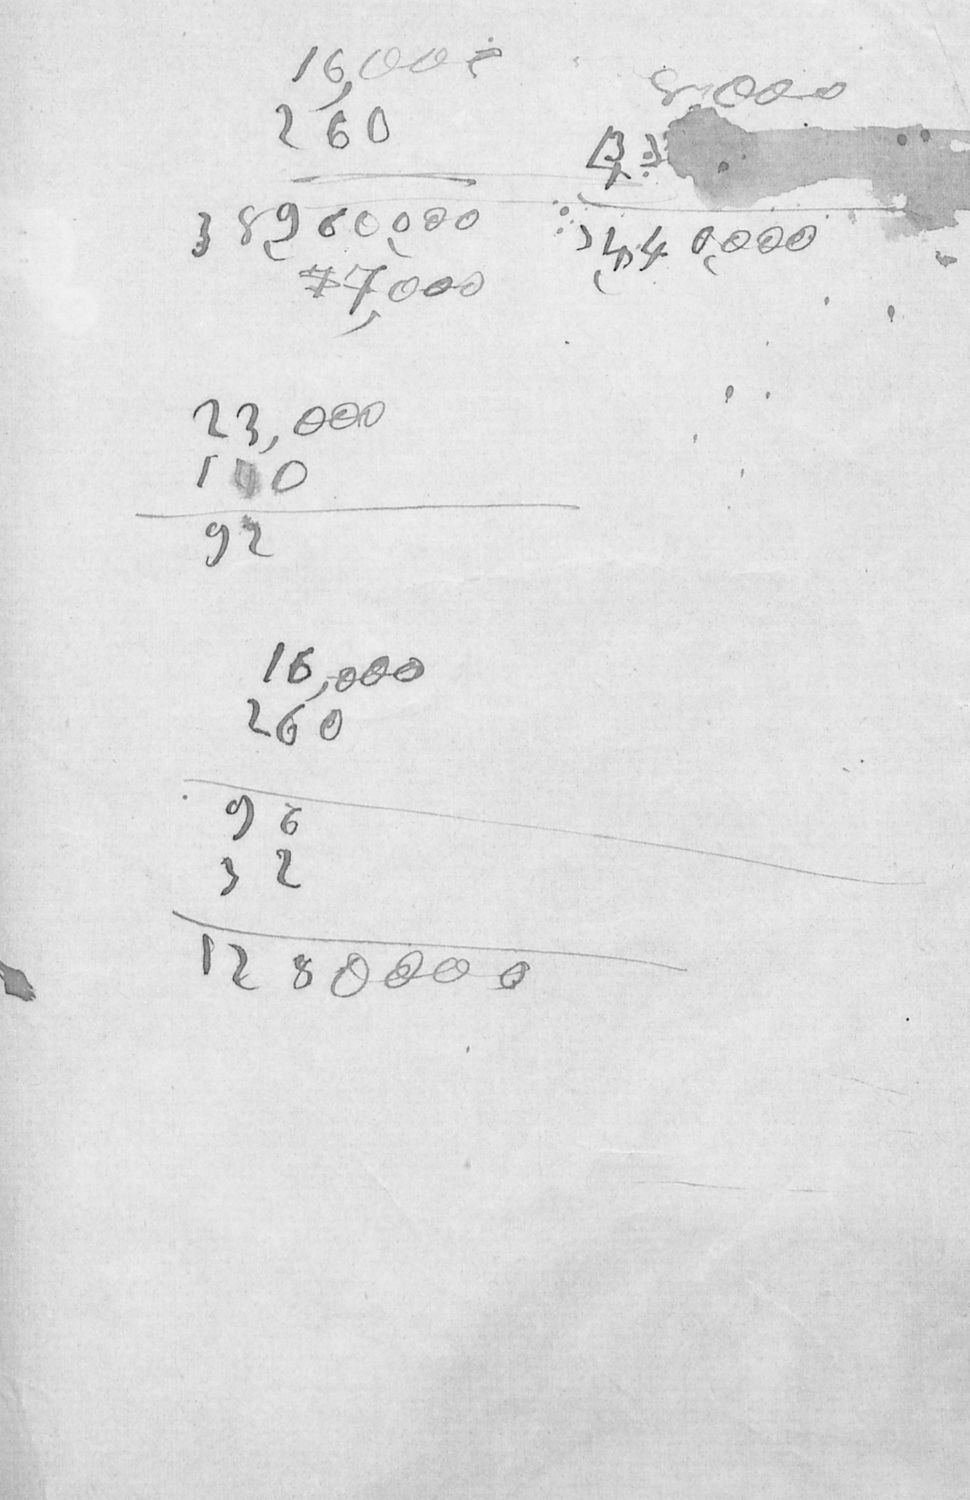 16,000
260
38960000
77,000
8,000
3,440,000
23,000
140
92
16,000
260
96
32
1280000